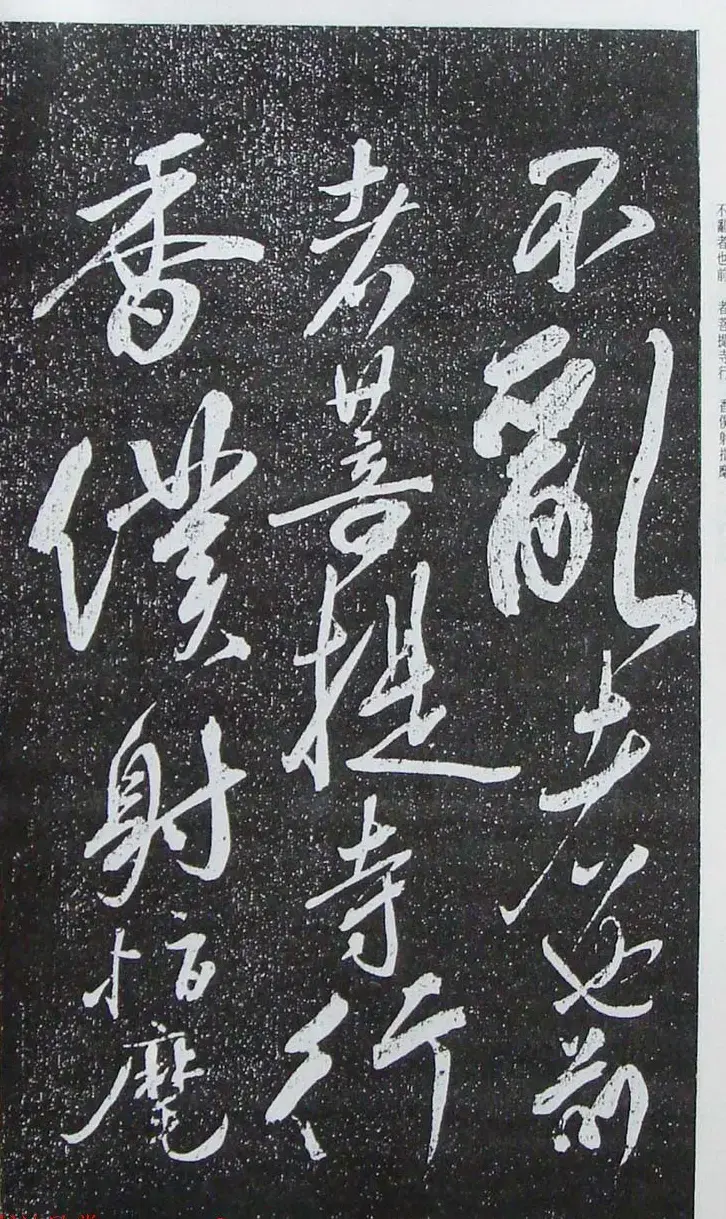 不亂者也前
者菩提寺行
香僕射指麾
不亂者也前 者菩提寺行 香僕射指麾